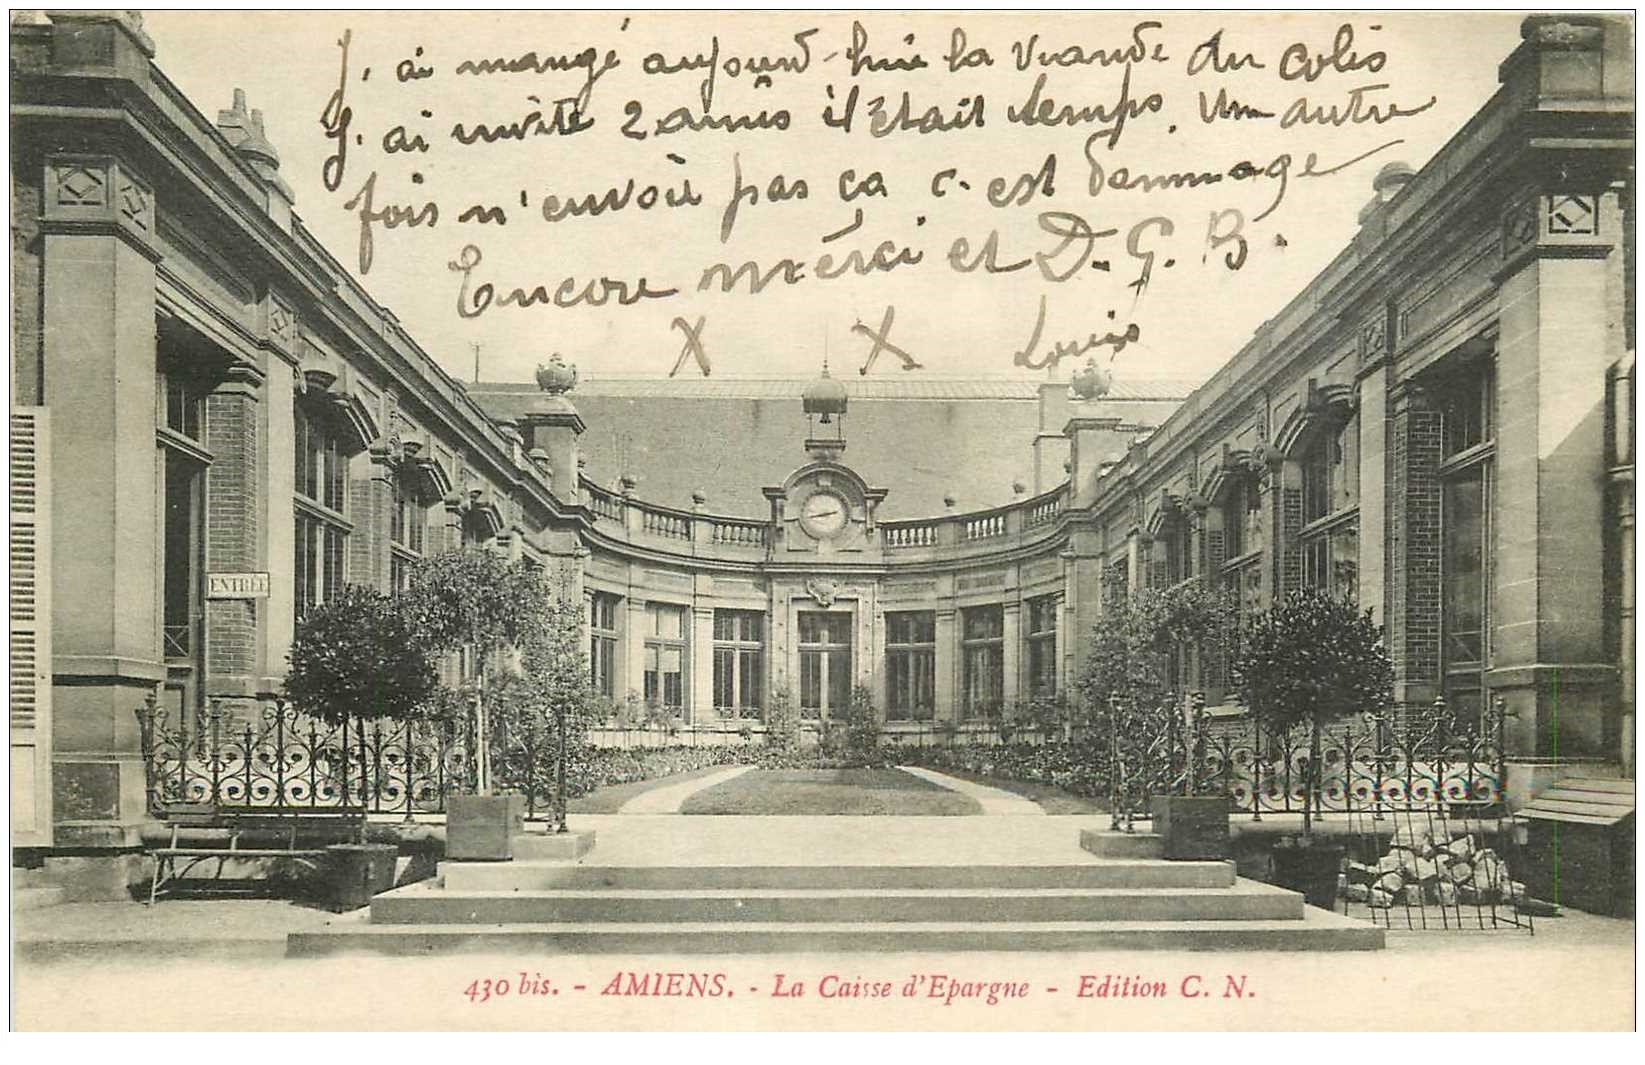 J. ai mangé aujourd-hui la viande du colis
J. ai invité 2 amis il était temps. Une autre
fois n'envoie pas ça c. est dommage
Encore mérci et D. G. B.
X X Louis
ENTRÉE
430 bis. - AMIENS. - La Caisse d'Epargne - Edition C. N.